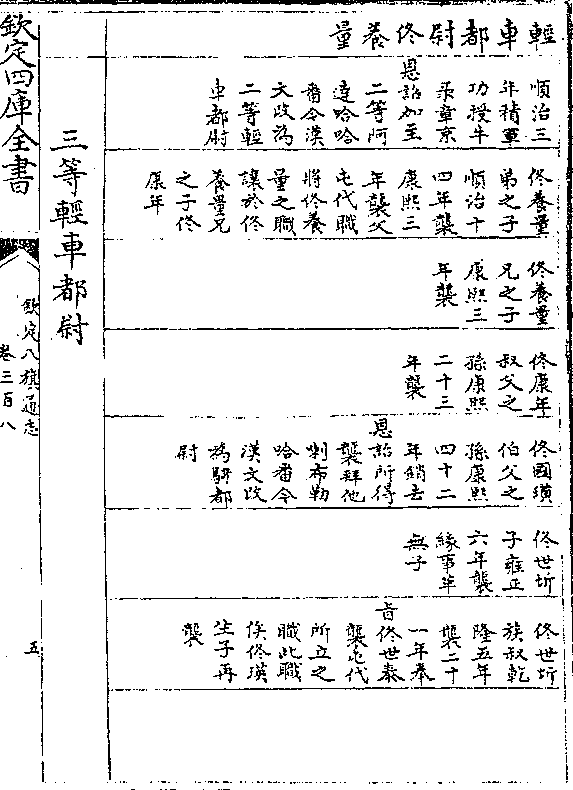 輕車都尉佟養量
順治三
年積軍
功授牛
录章京
恩詔加至
二等阿
達哈哈
番今漢
文改為
二等輕
車都尉
佟養量
弟之子
順治十
四年襲
康熙三
年襲父
屯代職
將佟養
量之職
讓於佟
養量兄
之子佟
康年
佟養量
兄之子
康熙三
年襲
佟康年
叔父之
孫康熙
二十三
年襲
佟國璸
伯父之
孫康熙
四十二
年銷去
恩詔所得
襲拜他
喇布勒
哈番今
漢文改
為騎都
尉
佟世圻
子雍正
六年襲
緣事革
無子
佟世圻
族叔乾
隆五年
襲二十
一年奉
旨佟世泰
襲屯代
所立之
職此職
俟佟瑛
生子再
襲
三等輕車都尉
欽定四庫全書
欽定八旗通志
卷三百八
五